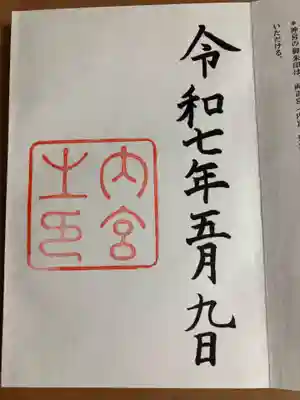 ＊神宮の御朱印は、両正宮
いただける。
令和七年五月九日
内宮
之印